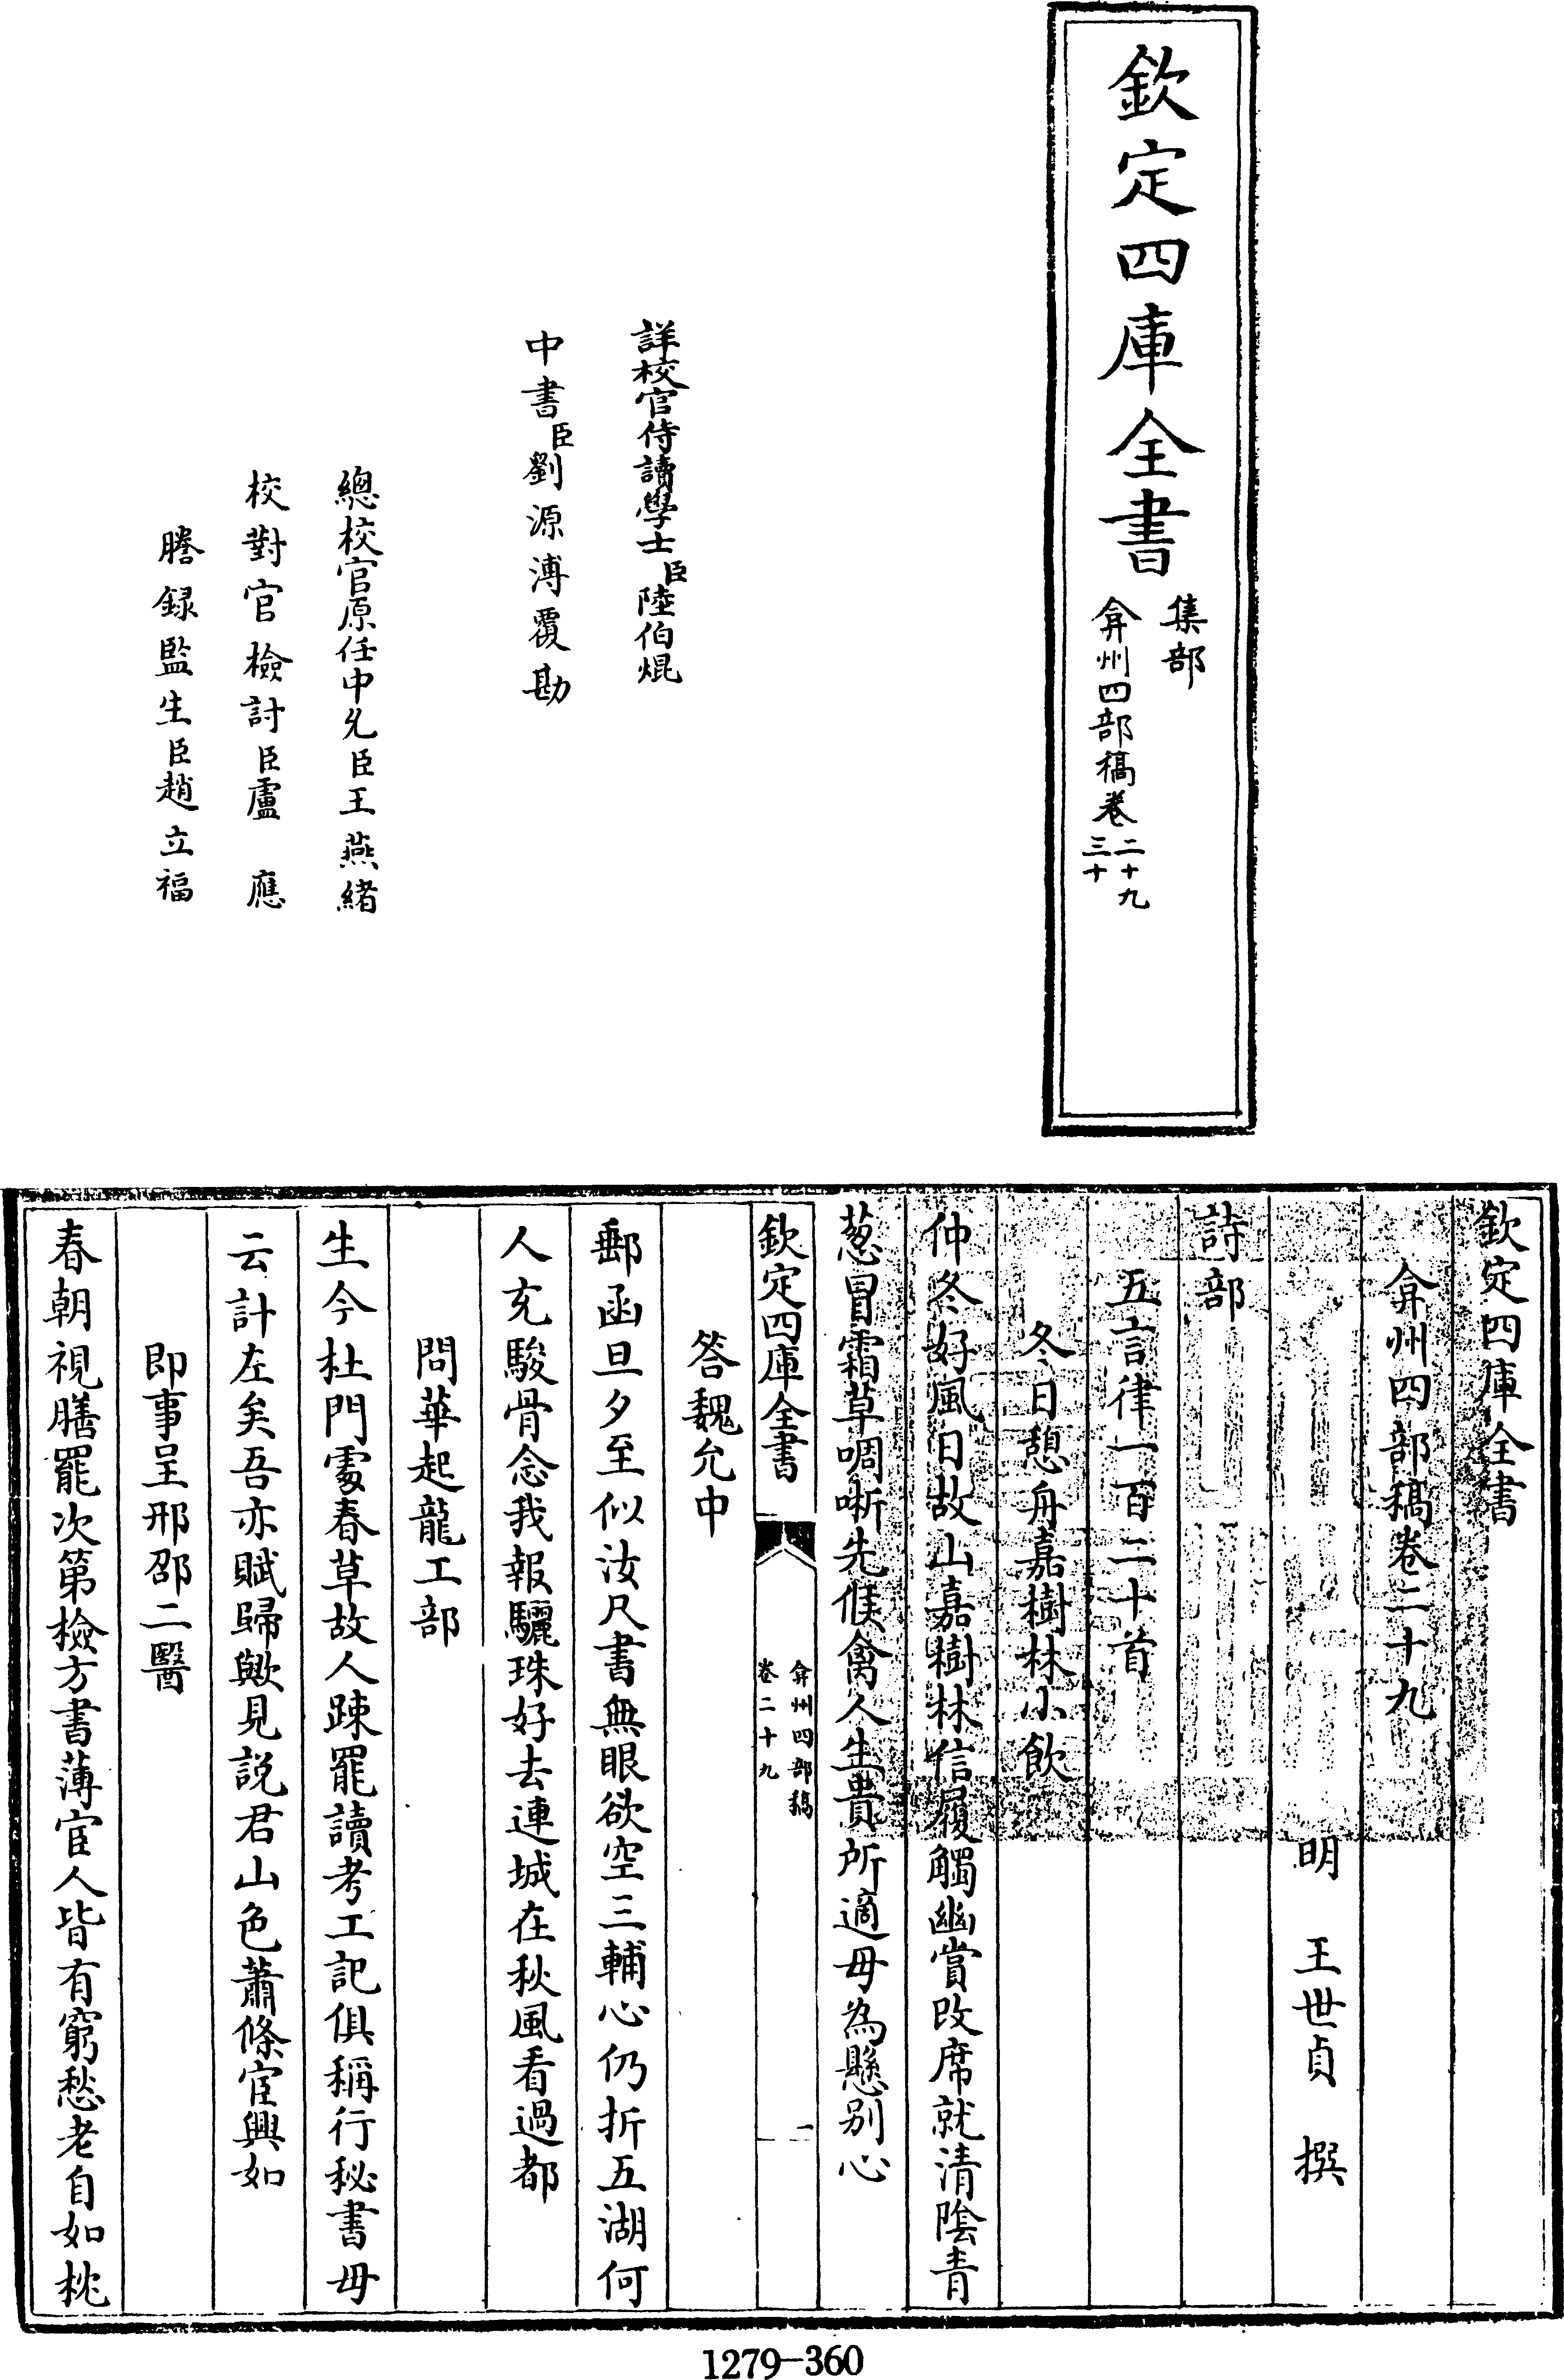 欽定四庫全書
集部
弇州四部稿卷二十九
三十
詳校官侍讀學士臣陸伯焜
中書臣劉源溥覆勘
總校官原任中允臣王燕緒
校對官檢討臣盧應
謄錄監生臣趙立福
欽定四庫全書
弇州四部稿卷二十九
明 王世貞 撰
詩部
五言律一百二十首
冬日憩舟嘉樹林小飲
仲冬好風日故山嘉樹林信履觸幽賞改席就清隂青
葱冒霜草啁哳先候禽人生貴所適毋為懸别心
欽定四庫全書
弇州四部稿
卷二十九
一
答魏允中
郵函旦夕至似汝尺書無眼欲空三輔心仍折五湖何
人充駿骨念我報驪珠好去連城在秋風看過都
問華起龍工部
生今杜門處春草故人踈罷讀考工記俱稱行秘書毋
云計左矣吾亦賦歸歟見説君山色蕭條宦興如
即事呈邢邵二醫
春朝視膳罷次第檢方書薄宦人皆有窮愁老自如枕
1279-360